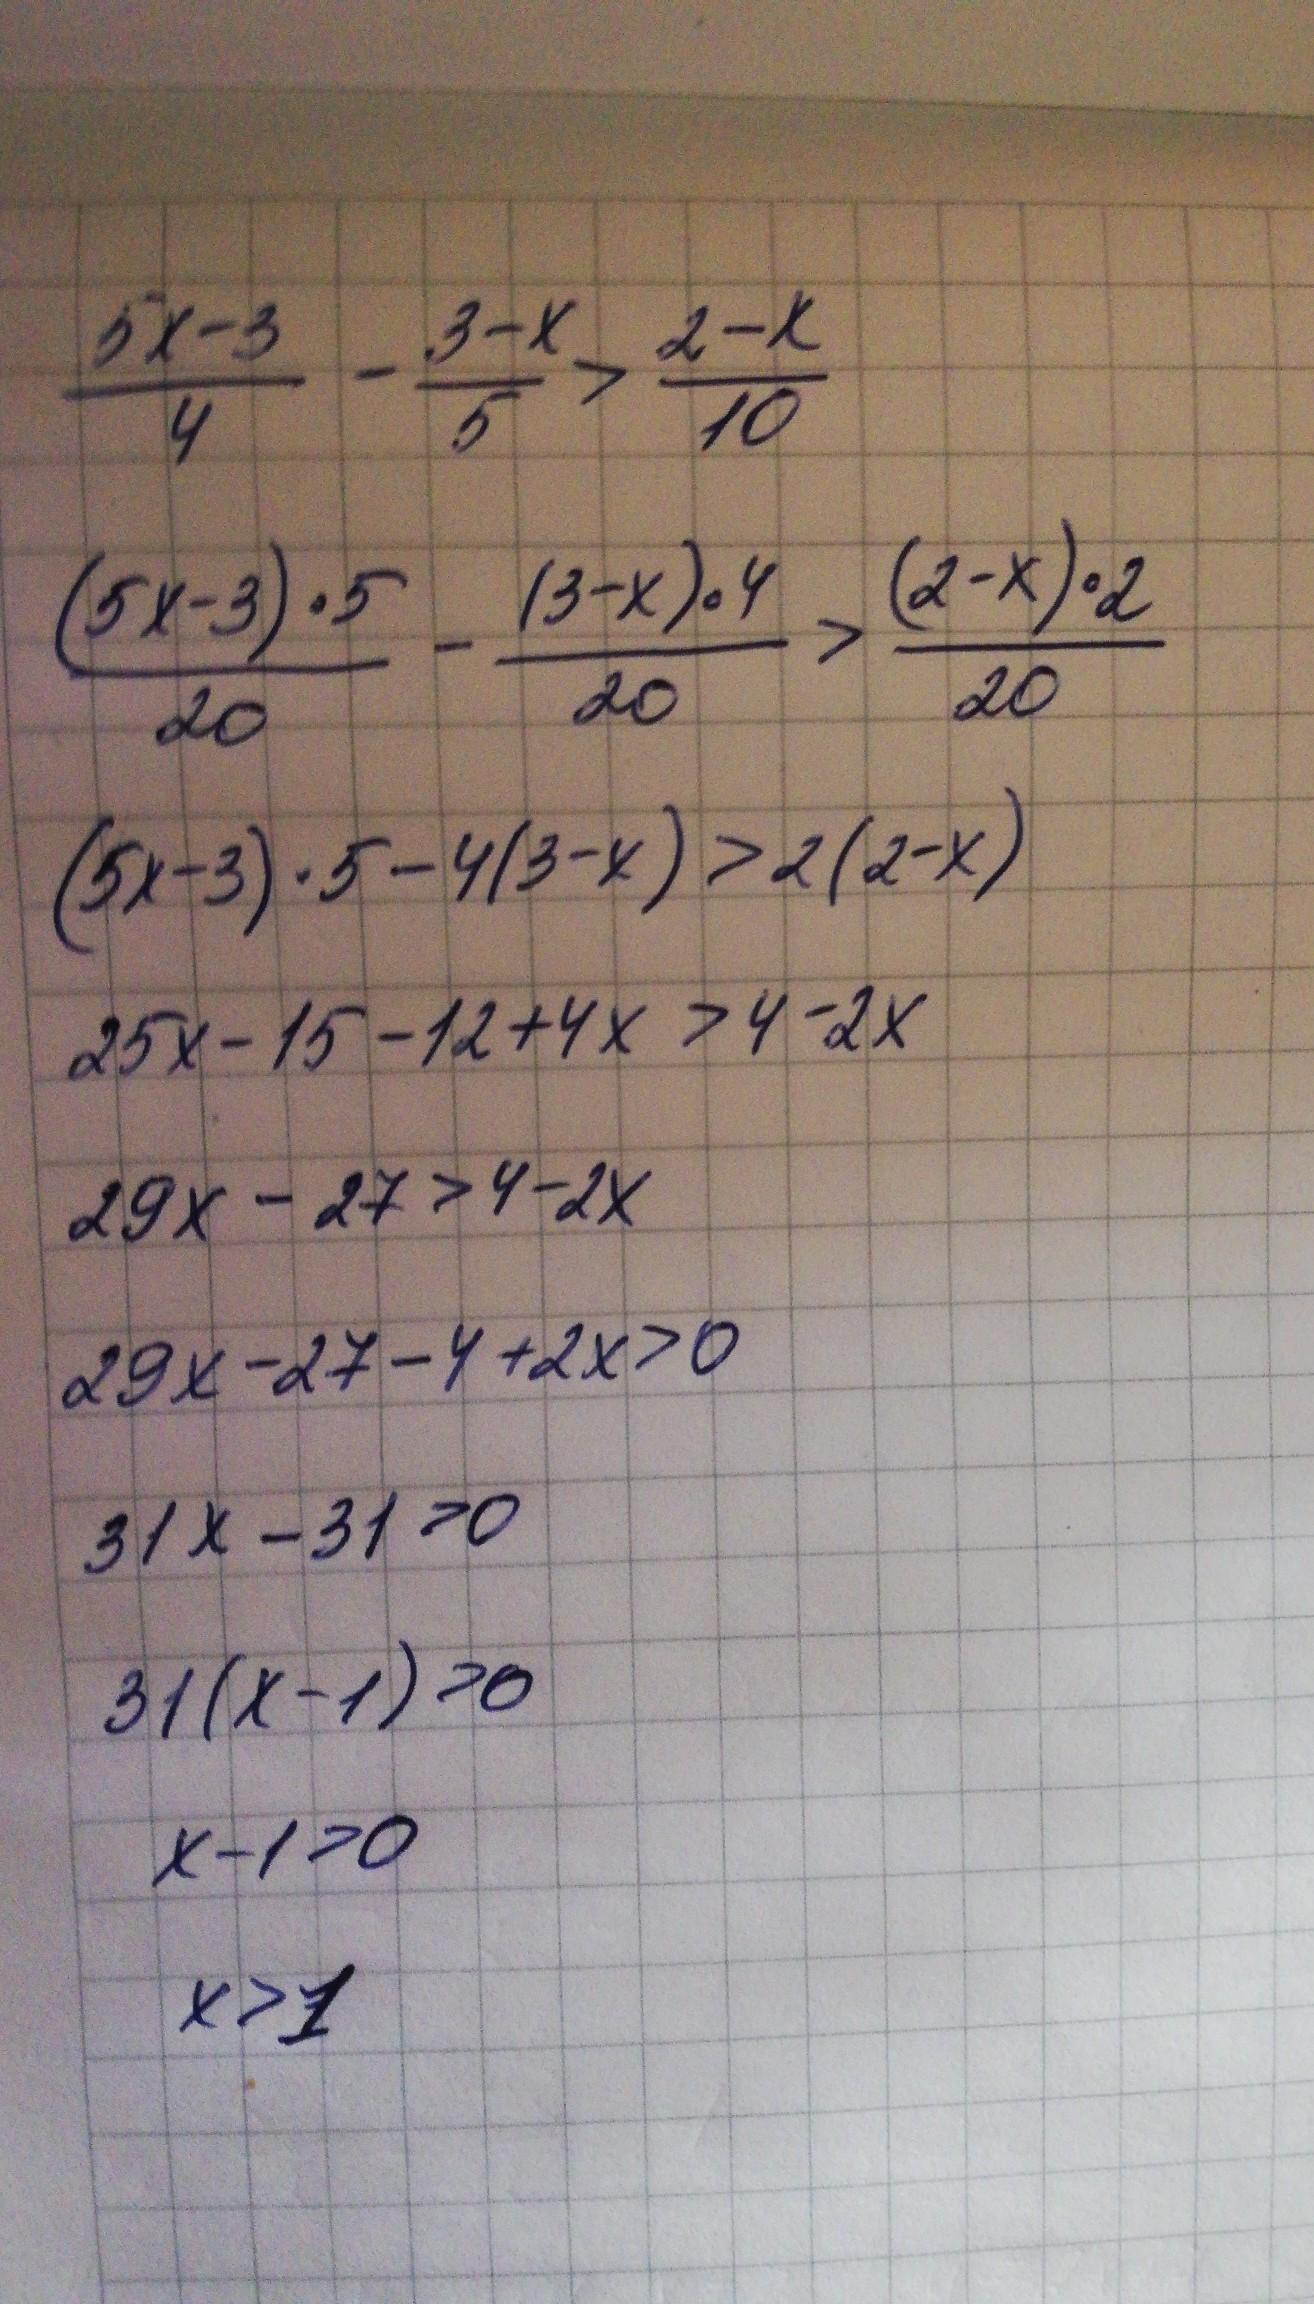 (5x-3)/4 - (3-x)/5 > (2-x)/10
(5x-3)·5/20 - (3-x)·4/20 > (2-x)·2/20
(5x-3)·5-4(3-x)>2(2-x)
25x-15-12+4x>4-2x
29x-27>4-2x
29x-27-4+2x>0
31x-31>0
31(x-1)>0
x-1>0
x>1